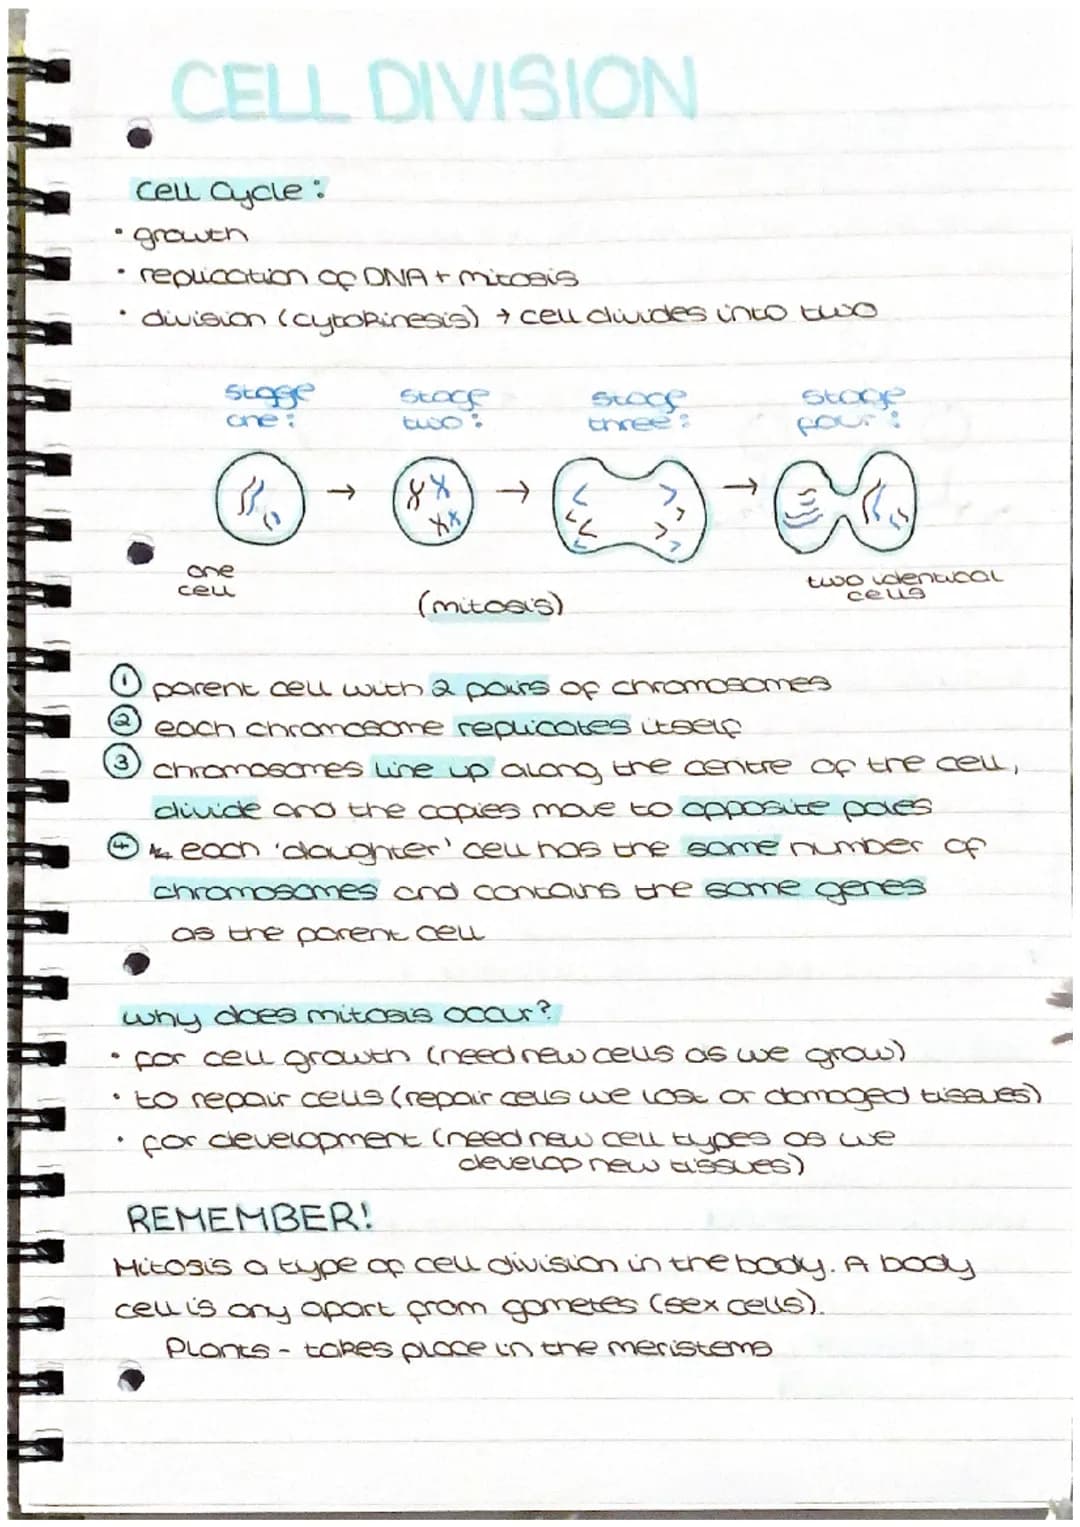 CELL DIVISION
Cell Cycle:
• growth
• replication of DNA + mitosis
• division (cytokinesis) → cell divides into two
stage one:
stage two:
stage three:
stage four:
→ → →
one cell
two identical cells
(mitosis)
① parent cell with 2 pairs of chromosomes
② each chromosome replicates itself
③ chromosomes line up along the centre of the cell,
divide and the copies move to opposite poles
④ each 'daughter' cell has the same number of
chromosomes and contains the same genes
as the parent cell
why does mitosis occur?
• for cell growth (need new cells as we grow)
• to repair cells (repair cells we lost or damaged tissues)
• for development (need new cell types as we
develop new tissues)
REMEMBER!
Mitosis a type of cell division in the body. A body
cell is any apart from gametes (sex cells).
Plants - takes place in the meristems